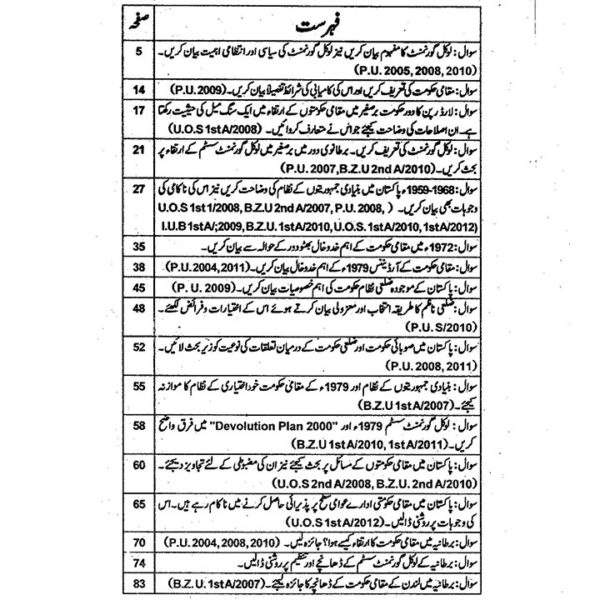 فہرست صفحہ
سوال: لوکل گورنمنٹ کا مفہوم بیان کریں نیز لوکل گورنمنٹ کی سیاسی اور انتظامی اہمیت بیان کریں۔ 5
(P.U. 2005, 2008, 2010)
سوال: مقامی حکومت کی تعریف کریں اور اس کی کامیابی کی شرائط تفصیلاً بیان کریں۔ (P.U. 2009) 14
سوال: لارڈ رپن کا دور حکومت برصغیر میں مقامی حکومتوں کے ارتقاء میں ایک سنگ میل کی حیثیت رکھتا 17
ہے۔ ان اصلاحات کی وضاحت کیجئے جو اس نے متعارف کروائیں۔ (U.O.S 1st A/2008)
سوال: لوکل گورنمنٹ کی تعریف کریں۔ برطانوی دور میں برصغیر میں لوکل گورنمنٹ سسٹم کے ارتقاء پر 21
بحث کریں۔ (P.U. 2007, B.Z.U 2nd A/2010)
سوال: 1968-1959ء پاکستان میں بنیادی جمہوریتوں کے نظام کی وضاحت کریں نیز اس کی ناکامی کی 27
وجوہات بھی بیان کریں۔ ( U.O.S 1st 1/2008, B.Z.U 2nd A/2007, P.U. 2008,
I.U.B 1stA/;2009, B.Z.U 1st A/2010, U.O.S. 1st A/2010, 1st A/2012)
سوال: 1972ء میں مقامی حکومت کے اہم خدوخال بھٹو دور کے حوالہ سے بیان کریں۔ 35
سوال: مقامی حکومت کے آرڈیننس 1979ء کے اہم خدوخال بیان کریں۔ (P.U. 2004, 2011) 38
سوال: پاکستان کے موجودہ ضلعی نظام حکومت کی اہم خصوصیات بیان کریں۔ (P. U. 2009) 45
سوال: ضلعی ناظم کا طریقہ انتخاب اور معزولی بیان کرتے ہوئے اس کے اختیارات و فرائض لکھئے۔ 48
(P.U.S/2010)
سوال: پاکستان میں صوبائی حکومت اور ضلعی حکومت کے درمیان تعلقات کی نوعیت کو زیر بحث لائیں۔ 52
(P.U. 2008, 2011)
سوال: بنیادی جمہوریتوں کے نظام اور 1979ء کے مقامی حکومت خود اختیاری کے نظام کا موازنہ 55
کیجئے۔ (B.Z.U 1st A/2007)
سوال: لوکل گورنمنٹ سسٹم 1979ء اور "Devolution Plan 2000" میں فرق واضح 58
کریں۔ (B.Z.U 1st A/2010, 1st A/2011)
سوال: پاکستان میں مقامی حکومتوں کے مسائل پر بحث کیجئے نیز ان کی مضبوطی کے لئے تجاویز دیجئے۔ 60
(U.O.S 2nd A/2008, B.Z.U. 2nd A/2010)
سوال: پاکستان میں مقامی حکومتی ادارے عوامی سطح پر پذیرائی حاصل کرنے میں ناکام رہے ہیں۔ اس 65
کی وجوہات پر روشنی ڈالیں۔ (U.O.S 1st A/2012)
سوال: برطانیہ میں مقامی حکومت کا ارتقاء کیسے ہوا؟ جائزہ لیں۔ (P.U. 2004, 2008, 2010) 70
سوال: برطانیہ کے لوکل گورنمنٹ سسٹم کے ڈھانچے اور تنظیم پر روشنی ڈالیں۔ 74
سوال: برطانیہ میں لندن کے مقامی حکومت کے ڈھانچہ کا جائزہ لیجئے۔ (B.Z.U. 1st A/2007) 83